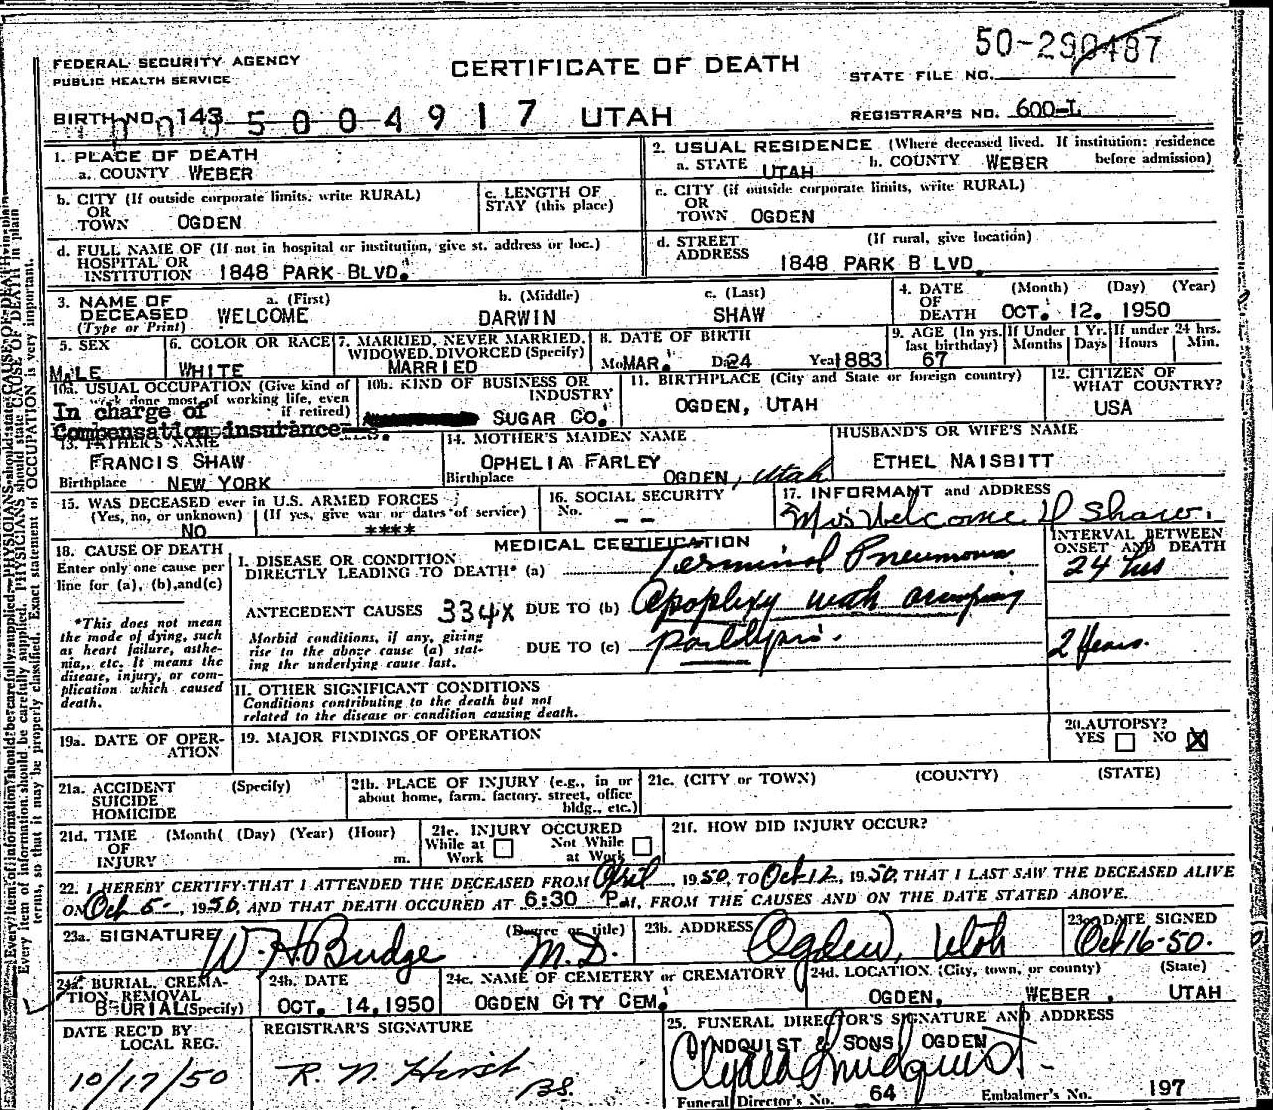 50-290487
FEDERAL SECURITY AGENCY
PUBLIC HEALTH SERVICE
CERTIFICATE OF DEATH
STATE FILE NO.
BIRTH NO. 143 5004917 UTAH
REGISTRAR'S NO. 600-L
1. PLACE OF DEATH
a. COUNTY WEBER
2. USUAL RESIDENCE (Where deceased lived. If institution: residence before admission)
a. STATE UTAH b. COUNTY WEBER
b. CITY (If outside corporate limits, write RURAL)
OR
TOWN OGDEN
c. LENGTH OF
STAY (this place)
c. CITY (if outside corporate limits, write RURAL)
OR
TOWN OGDEN
d. FULL NAME OF (If not in hospital or institution, give st. address or loc.)
HOSPITAL OR
INSTITUTION 1848 PARK BLVD.
d. STREET (If rural, give location)
ADDRESS 1848 PARK B LVD.
3. NAME OF DECEASED (Type or Print)
a. (First) b. (Middle) c. (Last)
WELCOME DARWIN SHAW
4. DATE OF DEATH (Month) (Day) (Year)
OCT. 12. 1950
5. SEX
MALE
6. COLOR OR RACE
WHITE
7. MARRIED, NEVER MARRIED,
WIDOWED, DIVORCED (Specify)
MARRIED
8. DATE OF BIRTH
Mo MAR. Da 24 Year 1883
9. AGE (In yrs. last birthday)
67
If Under 1 Yr. Months Days
If under 24 hrs. Hours Min.
10a. USUAL OCCUPATION (Give kind of
work done most of working life, even
if retired)
In charge of
Compensation insurance
10b. KIND OF BUSINESS OR
INDUSTRY
SUGAR CO.
11. BIRTHPLACE (City and State or foreign country)
OGDEN, UTAH
12. CITIZEN OF
WHAT COUNTRY?
USA
13. FATHER'S NAME
FRANCIS SHAW
Birthplace NEW YORK
14. MOTHER'S MAIDEN NAME
OPHELIA FARLEY
Birthplace OGDEN, Utah
HUSBAND'S OR WIFE'S NAME
ETHEL NAISBITT
15. WAS DECEASED ever in U.S. ARMED FORCES
(Yes, no, or unknown) (If yes, give war or dates of service)
NO ****
16. SOCIAL SECURITY
No. --
17. INFORMANT and ADDRESS
Mrs Welcome D Shaw.
18. CAUSE OF DEATH
Enter only one cause per
line for (a), (b), and (c)
*This does not mean
the mode of dying, such
as heart failure, asthe-
nia, etc. It means the
disease, injury, or com-
plication which caused
death.
MEDICAL CERTIFICATION
I. DISEASE OR CONDITION
DIRECTLY LEADING TO DEATH* (a) Terminal Pneumonia
ANTECEDENT CAUSES 334X DUE TO (b) Apoplexy with
Morbid conditions, if any, giving
rise to the above cause (a) stat-
ing the underlying cause last.
DUE TO (c) paralysis.
INTERVAL BETWEEN
ONSET AND DEATH
24 hrs
2 Years.
II. OTHER SIGNIFICANT CONDITIONS
Conditions contributing to the death but not
related to the disease or condition causing death.
19a. DATE OF OPER-
ATION
19. MAJOR FINDINGS OF OPERATION
20. AUTOPSY?
YES NO X
21a. ACCIDENT (Specify)
SUICIDE
HOMICIDE
21b. PLACE OF INJURY (e.g., in or
about home, farm, factory, street, office
bldg., etc.)
21c. (CITY or TOWN) (COUNTY) (STATE)
21d. TIME (Month) (Day) (Year) (Hour)
OF
INJURY m.
21e. INJURY OCCURED
While at Work Not While at Work
21f. HOW DID INJURY OCCUR?
22. I HEREBY CERTIFY THAT I ATTENDED THE DECEASED FROM April, 1950, TO Oct-12, 1950, THAT I LAST SAW THE DECEASED ALIVE
ON Oct 5-, 1950, AND THAT DEATH OCCURED AT 6:30 P.M., FROM THE CAUSES AND ON THE DATE STATED ABOVE.
23a. SIGNATURE (Degree or title)
W. H. Budge M.D.
23b. ADDRESS
Ogden, Utah
23c. DATE SIGNED
Oct 16-50.
24a. BURIAL, CREMA-
TION, REMOVAL
BURIAL (Specify)
24b. DATE
OCT. 14, 1950
24c. NAME OF CEMETERY or CREMATORY
OGDEN CITY CEM.
24d. LOCATION (City, town, or county) (State)
OGDEN, WEBER, UTAH
DATE REC'D BY
LOCAL REG.
10/17/50
REGISTRAR'S SIGNATURE
R. N. Hirst
BS.
25. FUNERAL DIRECTOR'S SIGNATURE AND ADDRESS
LINDQUIST & SONS OGDEN
Clyde Lindquist
Funeral Director's No. 64 Embalmer's No. 197
Every item of information should be carefully supplied. PHYSICIANS should state CAUSE OF DEATH in plain
terms, so that it may be properly classified. Exact statement of OCCUPATION is very important.